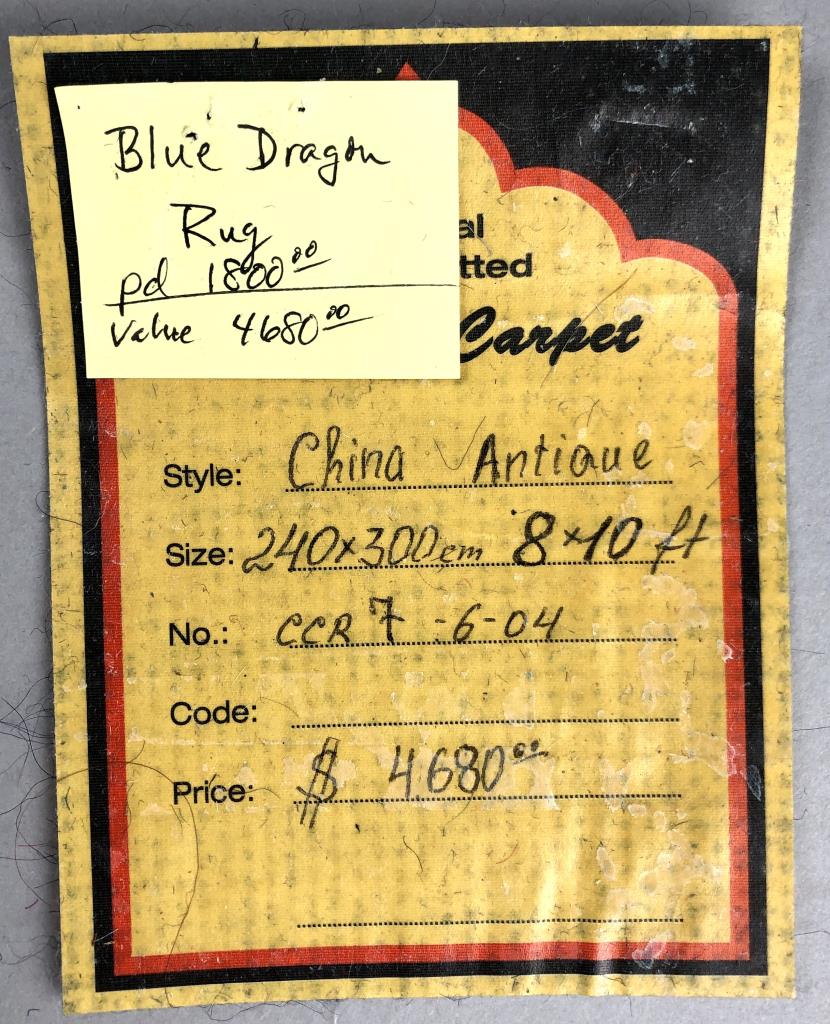 Blue Dragon
Rug
pd 1800.00
Value 4680.00
al
tted
Carpet
Style: China Antique
Size: 240x300cm 8x10 ft
No.: CCR 7 -6-04
Code:
Price: $ 4680.00